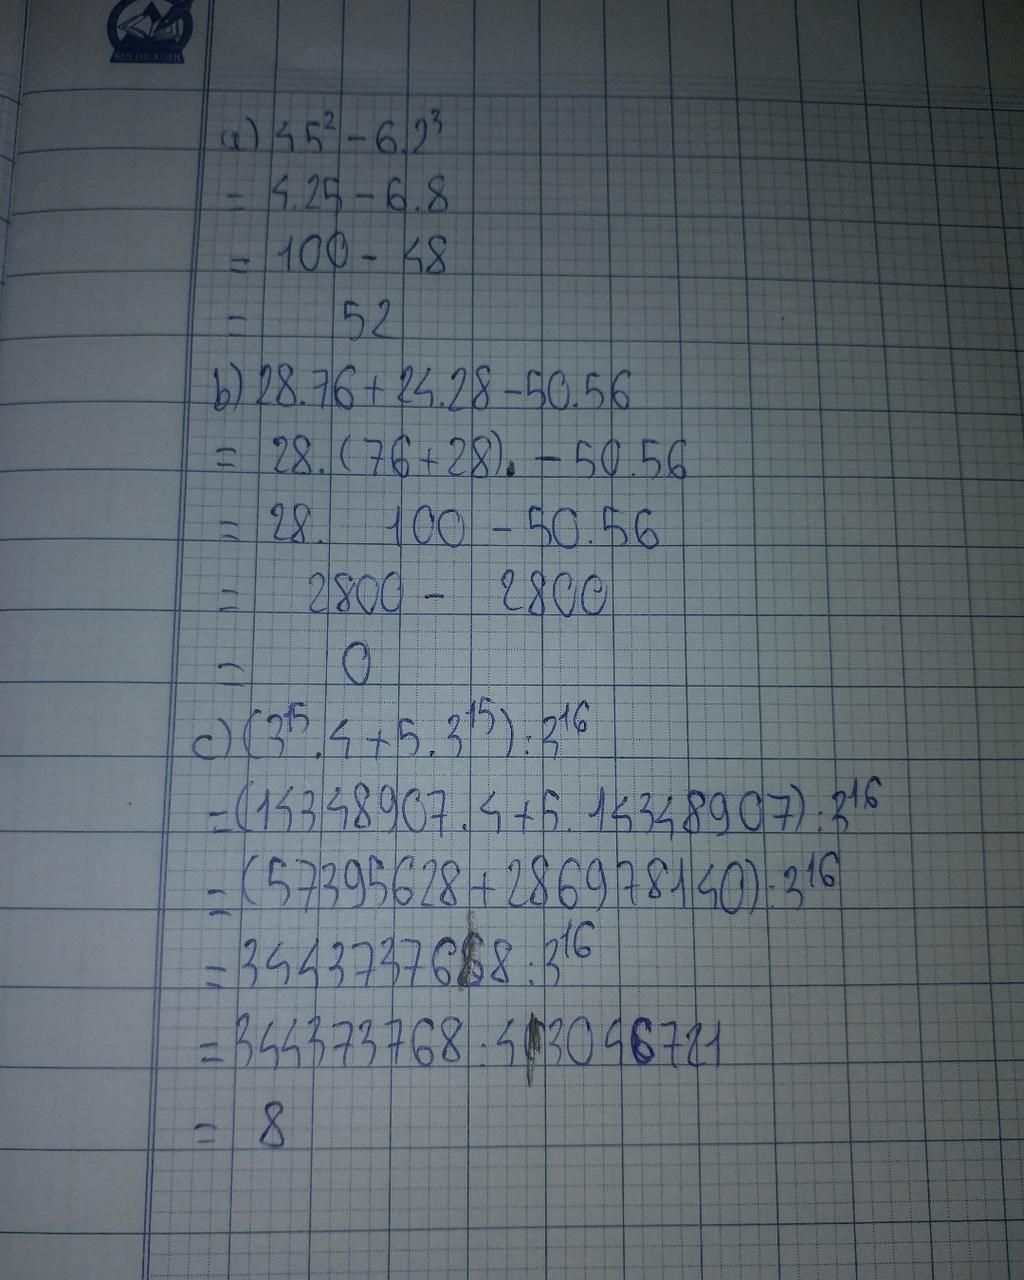 BÙI THỊ XUÂN
a) 4 5² - 6.2³
= 4.25 - 6.8
= 100 - 48
= 52
b) 28.76 + 24.28 - 50.56
= 28.(76+28). - 50.56
= 28. 100 - 50.56
= 2800 - 2800
= 0
c) (3¹⁵.4 + 5.3¹⁵) : 3¹⁶
= (14348907.4 + 5.14348907) : 3¹⁶
= (57395628 + 286978140) : 3¹⁶
= 344373768 : 3¹⁶
= 344373768 : 43046721
= 8